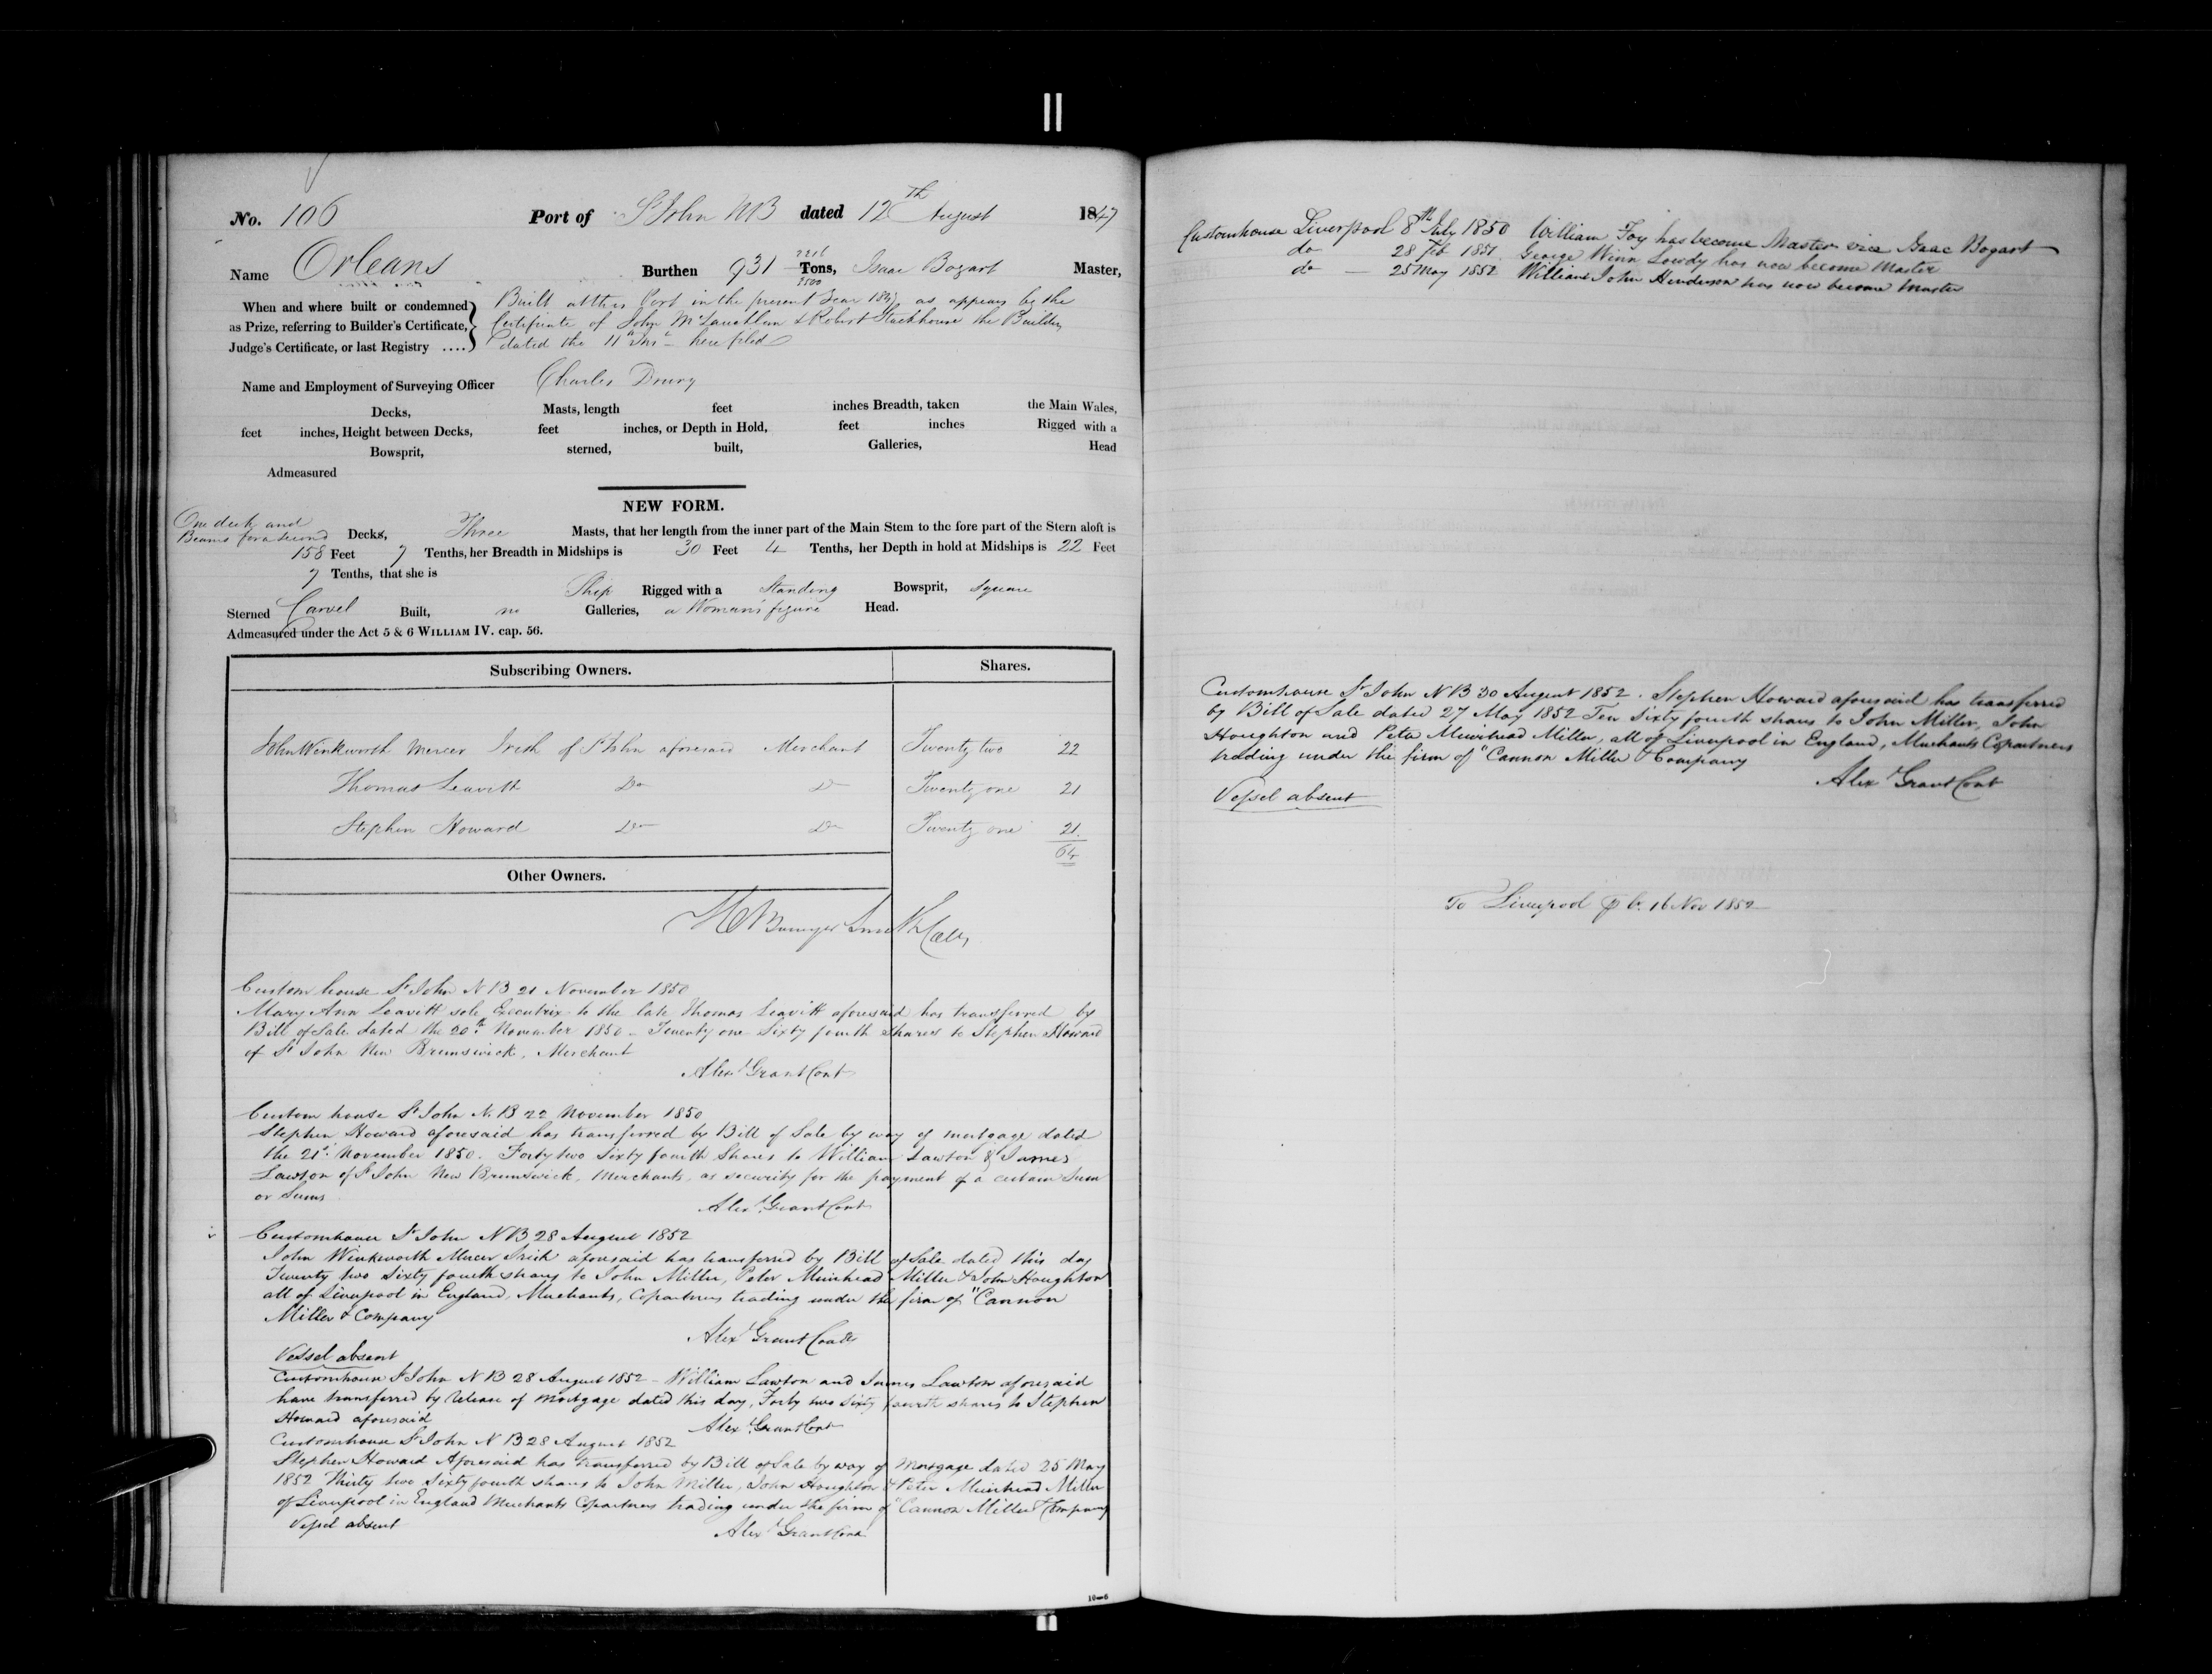 No. 106 Port of St John NB dated 12th August 1847
Name Orleans Burthen 931 Tons, Isaac Bogart Master,
When and where built or condemned as Prize, referring to Builder's Certificate, Judge's Certificate, or last Registry ....
Built at this Port in the present Year 1847 as appears by the
Certificate of John McLauchlan & Robert Stackhouse the Builders
dated the 11th Inst here filed
Name and Employment of Surveying Officer Charles Drury
Decks, Masts, length feet inches Breadth, taken the Main Wales,
feet inches, Height between Decks, feet inches, or Depth in Hold, feet inches Rigged with a
Bowsprit, sterned, built, Galleries, Head
Admeasured
NEW FORM.
One deck and
Beams for a second Decks, Three Masts, that her length from the inner part of the Main Stem to the fore part of the Stern aloft is
158 Feet 7 Tenths, her Breadth in Midships is 30 Feet 4 Tenths, her Depth in hold at Midships is 22 Feet
7 Tenths, that she is
Ship Rigged with a Standing Bowsprit, Square
Sterned Carvel Built, no Galleries, a Woman's figure Head.
Admeasured under the Act 5 & 6 WILLIAM IV. cap. 56.
Subscribing Owners. Shares.
John Wenkworth Mercer Irish of St John aforesaid Merchant Twenty two 22
Thomas Leavitt Do Do Twenty one 21
Stephen Howard Do Do Twenty one 21.
64
Other Owners.
Custom house St John NB 21 November 1850
Mary Ann Leavitt sole Executrix to the late Thomas Leavitt aforesaid has transferred by
Bill of Sale dated the 20th November 1850 - Twenty one Sixty fourth Shares to Stephen Howard
of St John New Brunswick, Merchant
Alexr Grant Cont
Custom house St John N.B 22 November 1850
Stephen Howard aforesaid has transferred by Bill of Sale by way of mortgage dated
the 21st November 1850. Forty two Sixty fourth Shares to William Lawton & James
Lawton of St John New Brunswick, Merchants, as security for the payment of a certain Sum
or Sums
Alexr Grant Cont
Customhouse St John NB 28 August 1852
John Winkworth Mercer Irish aforesaid has transferred by Bill of Sale dated this day
Twenty two Sixty fourth shares to John Miller, Peter Muirhead Miller & John Houghton
all of Liverpool in England, Merchants, Copartners trading under the firm of "Cannon
Miller & Company
Alexr Grant Cont
Vessel absent
Customhouse St John NB 28 August 1852 - William Lawton and James Lawton aforesaid
have transferred by Release of Mortgage dated this day, Forty two Sixty fourth shares to Stephen
Howard aforesaid
Alexr Grant Cont
Customhouse St John NB 28 August 1852
Stephen Howard Aforesaid has transferred by Bill of Sale by way of Mortgage dated 25 May
1852 Thirty two Sixty fourth shares to John Miller, John Houghton & Peter Muirhead Miller
of Liverpool in England Merchants Copartners trading under the firm of "Cannon Miller & Company
Vessel absent
Alexr Grant Cont
10—6
Customhouse Liverpool 8th July 1850 William Foy has become Master vice Isaac Bogart
do 28 Feb 1851. George Winn Lowdy has now become Master
do — 25 May 1852 William John Henderson has now become Master
Customhouse St John NB 30 August 1852. Stephen Howard aforesaid has transferred
by Bill of Sale dated 27 May 1852 Ten Sixty fourth shares to John Miller, John
Houghton and Peter Muirhead Miller, all of Liverpool in England, Merchants Copartners
trading under the firm of "Cannon Miller & Company
Alexr Grant Cont
Vessel absent
To Liverpool 16 Nov 1852